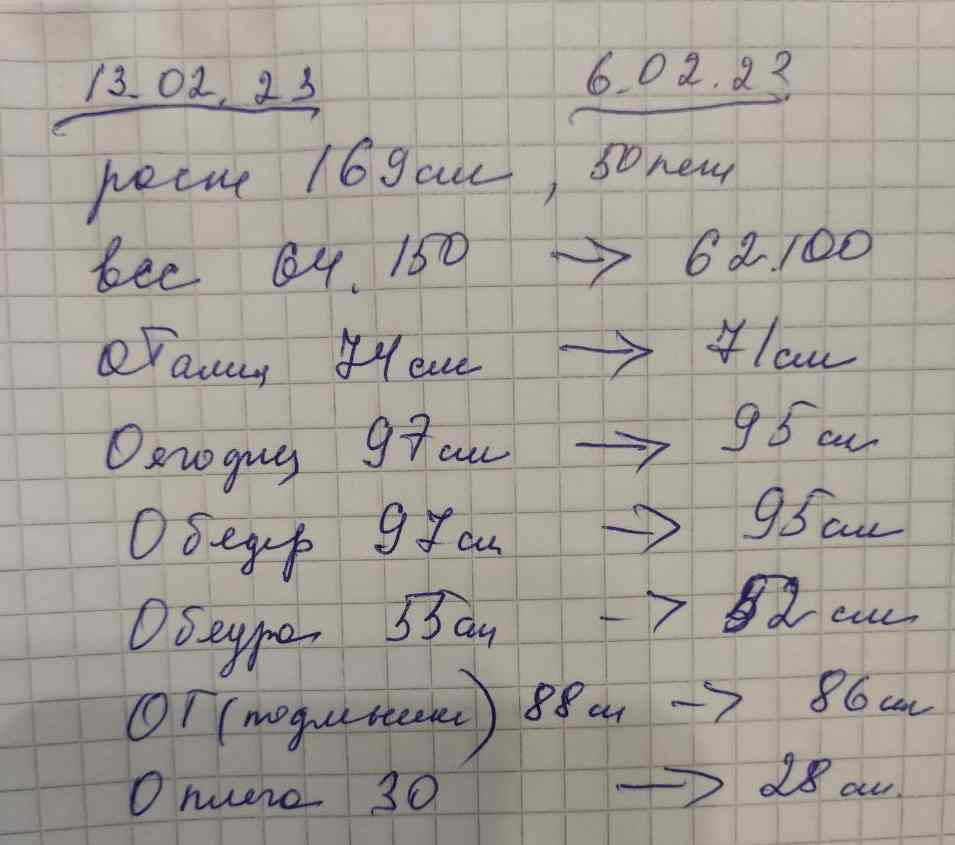 13.02.23 6.02.23
рост 169см, 50 лет
вес 64.150 → 62.100
ОТалии 74см → 71см
Оягодиц 97см → 95см
Обедер 97см → 95см
Обедра 55см → 52см
ОГ(подмышки) 88см → 86см
Оплеча 30 → 28см.